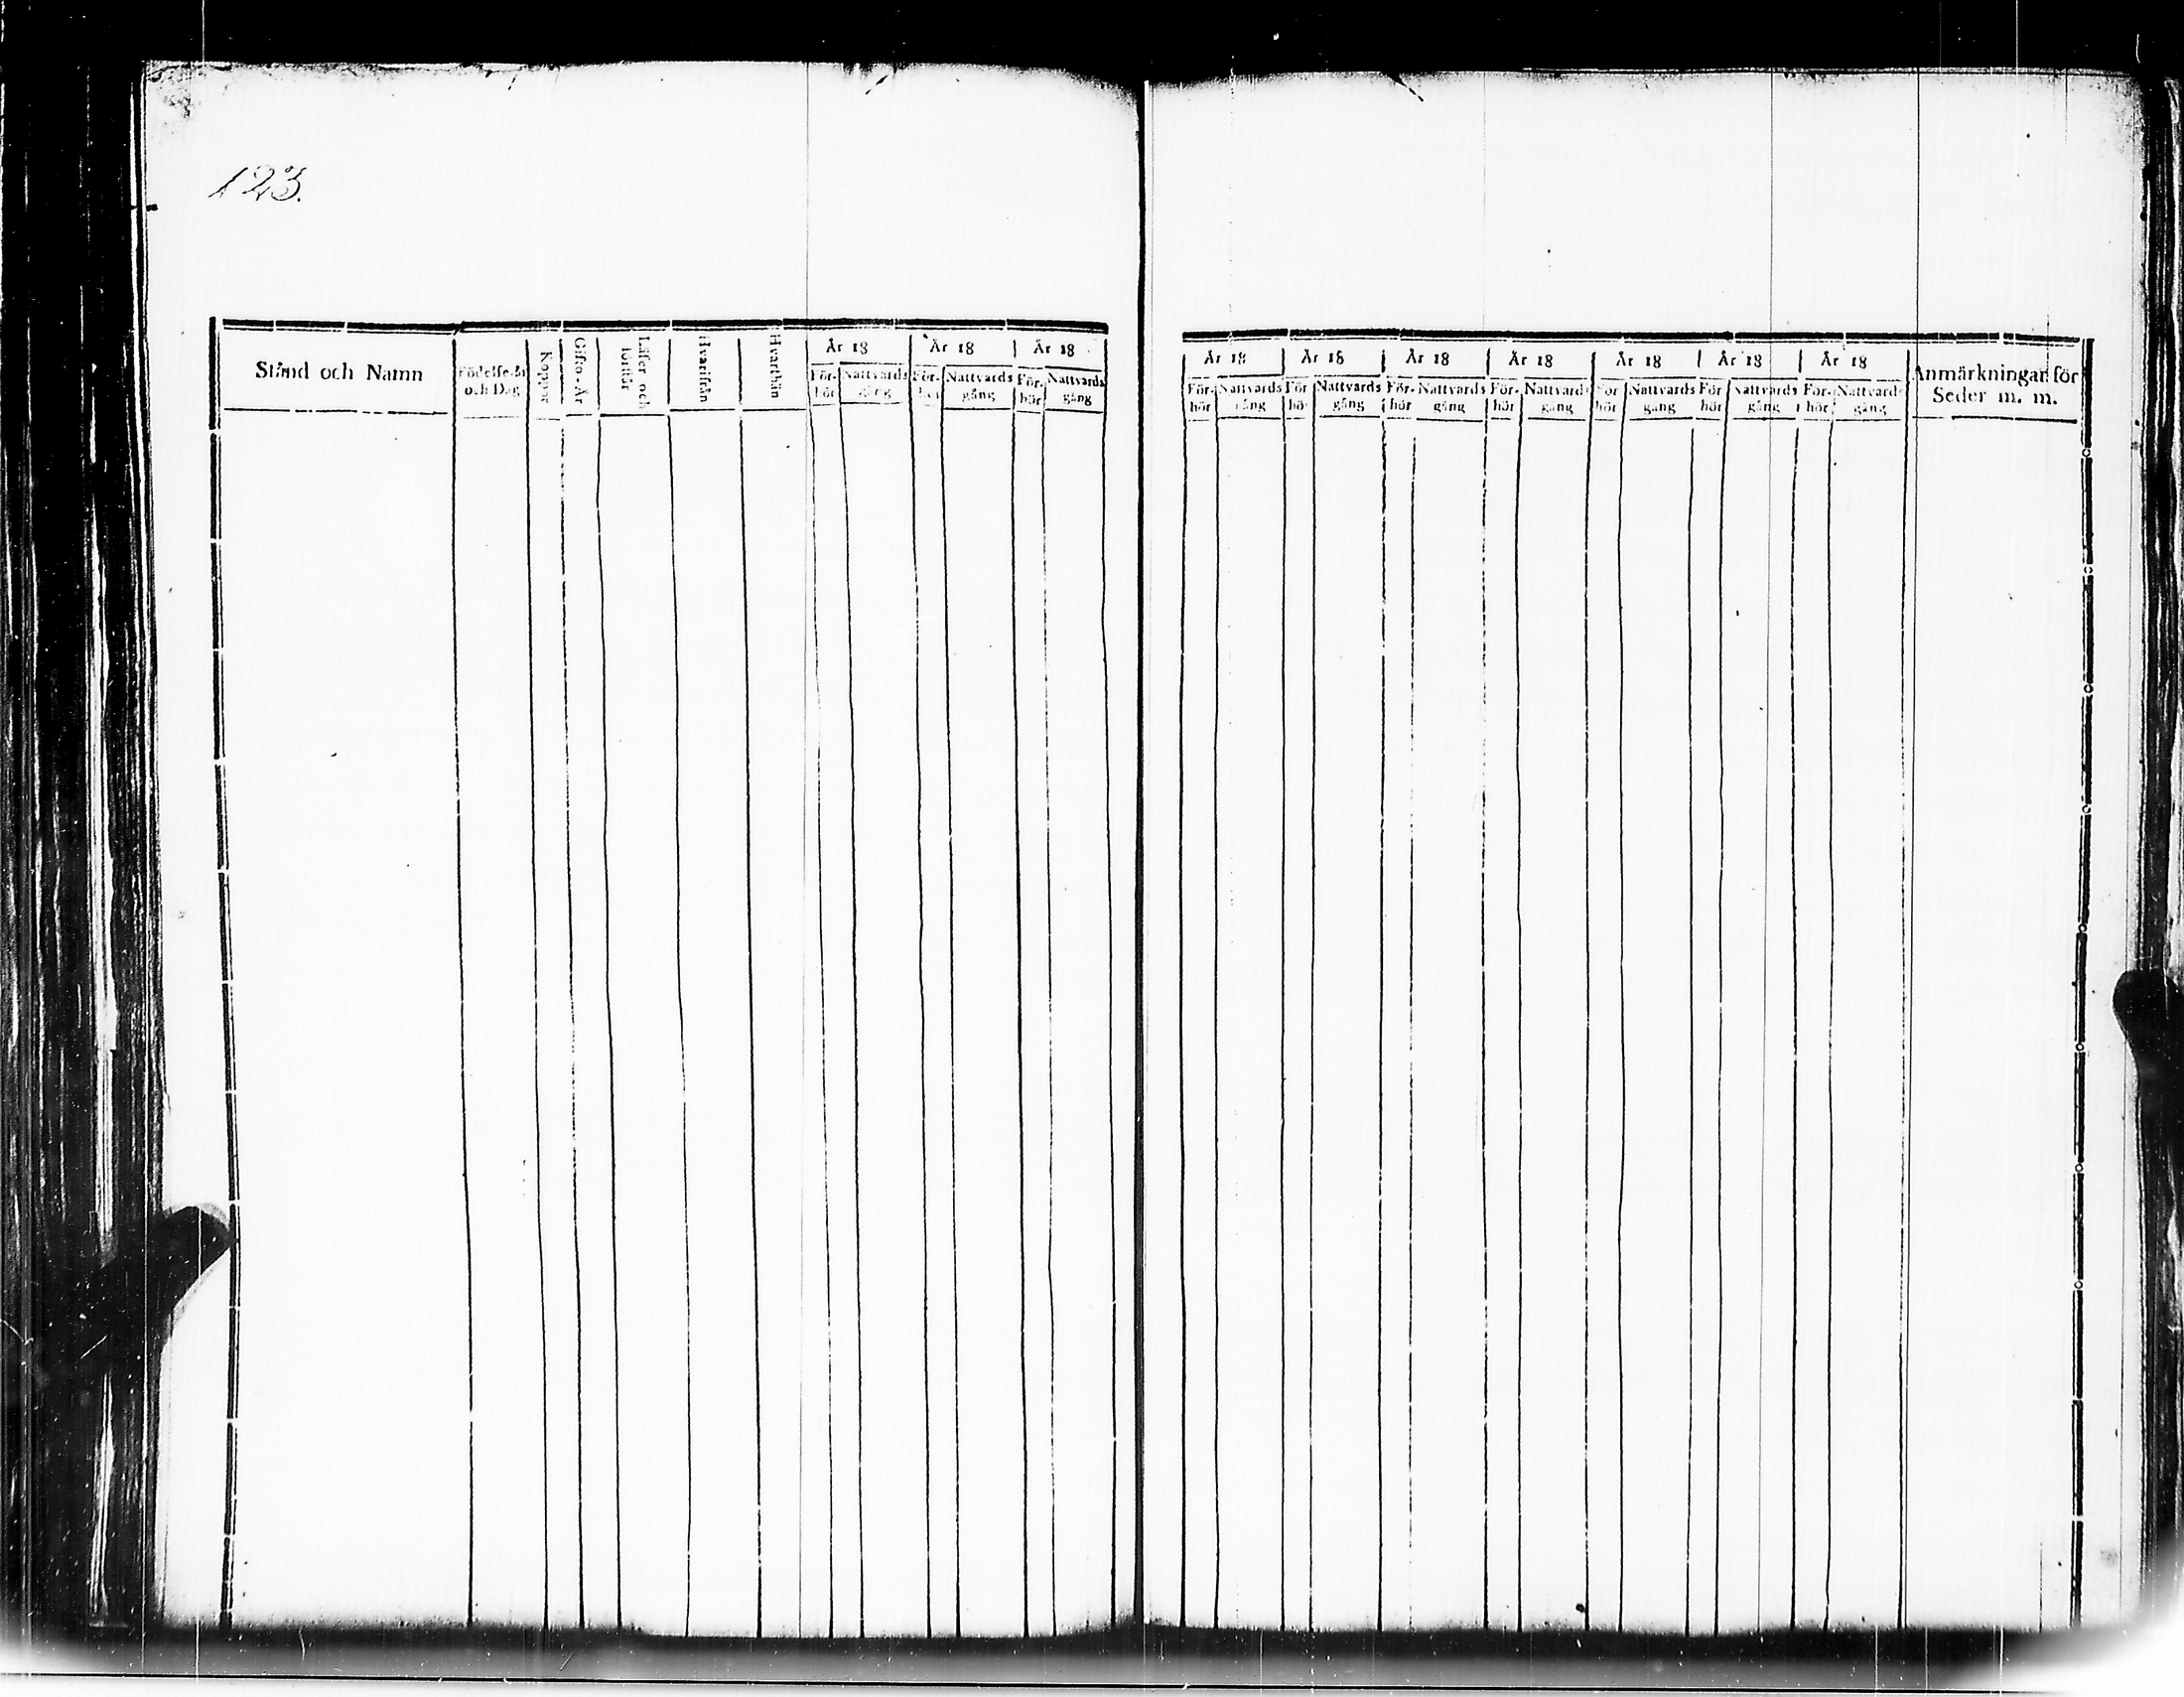 123.
Stånd och Namn
Födelse-år och Dag
Koppor
Gifto-År
Läser och förstår
Hvarifrån
Hvarthän
År 18
För-hör
Nattvards gång
År 18
För-hör
Nattvards gång
År 18
För-hör
Nattvards gång
År 18
För-hör
Nattvards gång
År 18
För hör
Nattvards gång
År 18
För-hör
Nattvards gång
År 18
För-hör
Nattvards gång
År 18
För hör
Nattvards gång
År 18
För hör
Nattvards gång
År 18
För-hör
Nattvards gång
Anmärkningar för
Seder m. m.